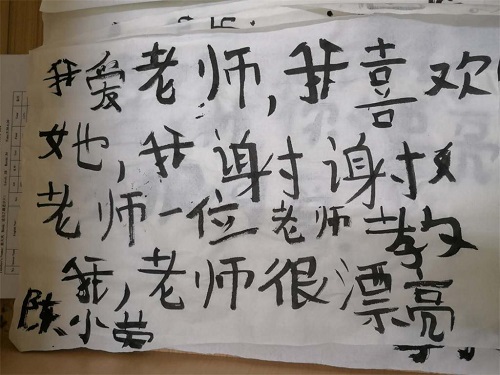 我爱老师,我喜欢
她,我谢谢
老师一位老师教
我,老师很漂亮
陈小荣